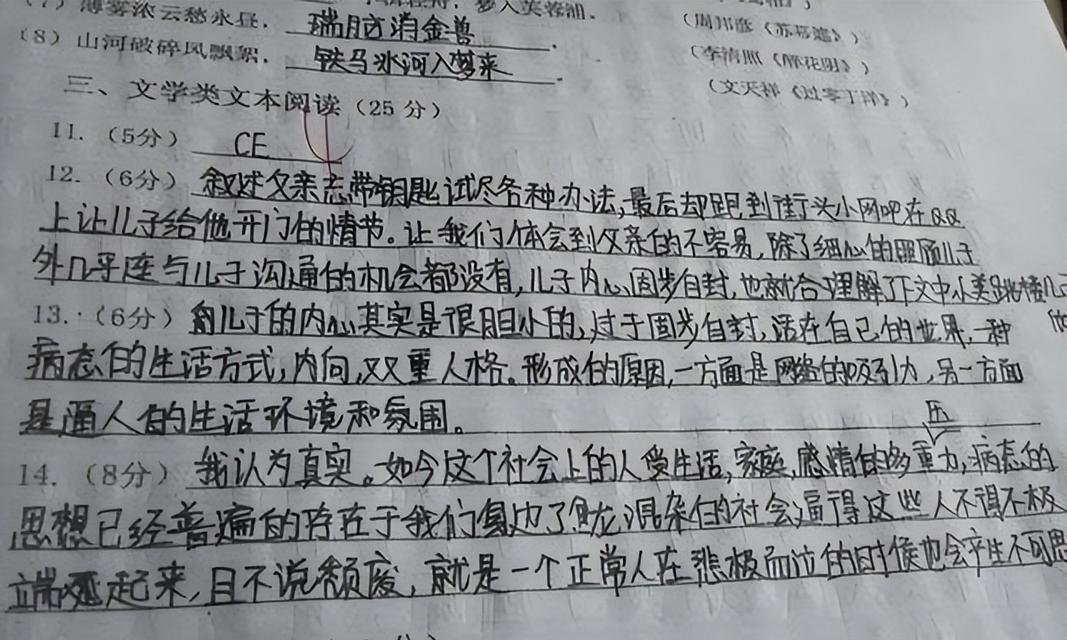 梦入芙蓉浦.
(7) 薄雾浓云愁永昼. 瑞脑消金兽. (周邦彦《苏幕遮》)
(8) 山河破碎风飘絮. 铁马冰河入梦来. (李清照《醉花阴》)
(文天祥《过零丁洋》)
三、文学类文本阅读 (25 分)
11. (5分) CE
12. (6分) 叙述父亲忘带钥匙试尽各种办法,最后却跑到街头小网吧在QQ
上让儿子给他开门的情节。让我们体会到父亲的不容易,除了细心的照顾儿子
外几乎连与儿子沟通的机会都没有,儿子内心固步自封,也就合理解了下文中小美跳楼
13. (6分) 儿子的内心其实是很胆小的,过于固步自封,活在自己的世界,一种
病态的生活方式,内向,双重人格。形成的原因,一方面是网络的吸引力,另一方面
是逼人的生活环境和氛围。
压
14. (8分) 我认为真实。如今这个社会上的人受生活,家庭,感情的多重力,病态的
思想已经普遍的存在于我们身边了鱼龙混杂的社会逼得这些人不得不极
端起来,且不说颓废,就是一个正常人在悲极而泣的时候也会产生不可思